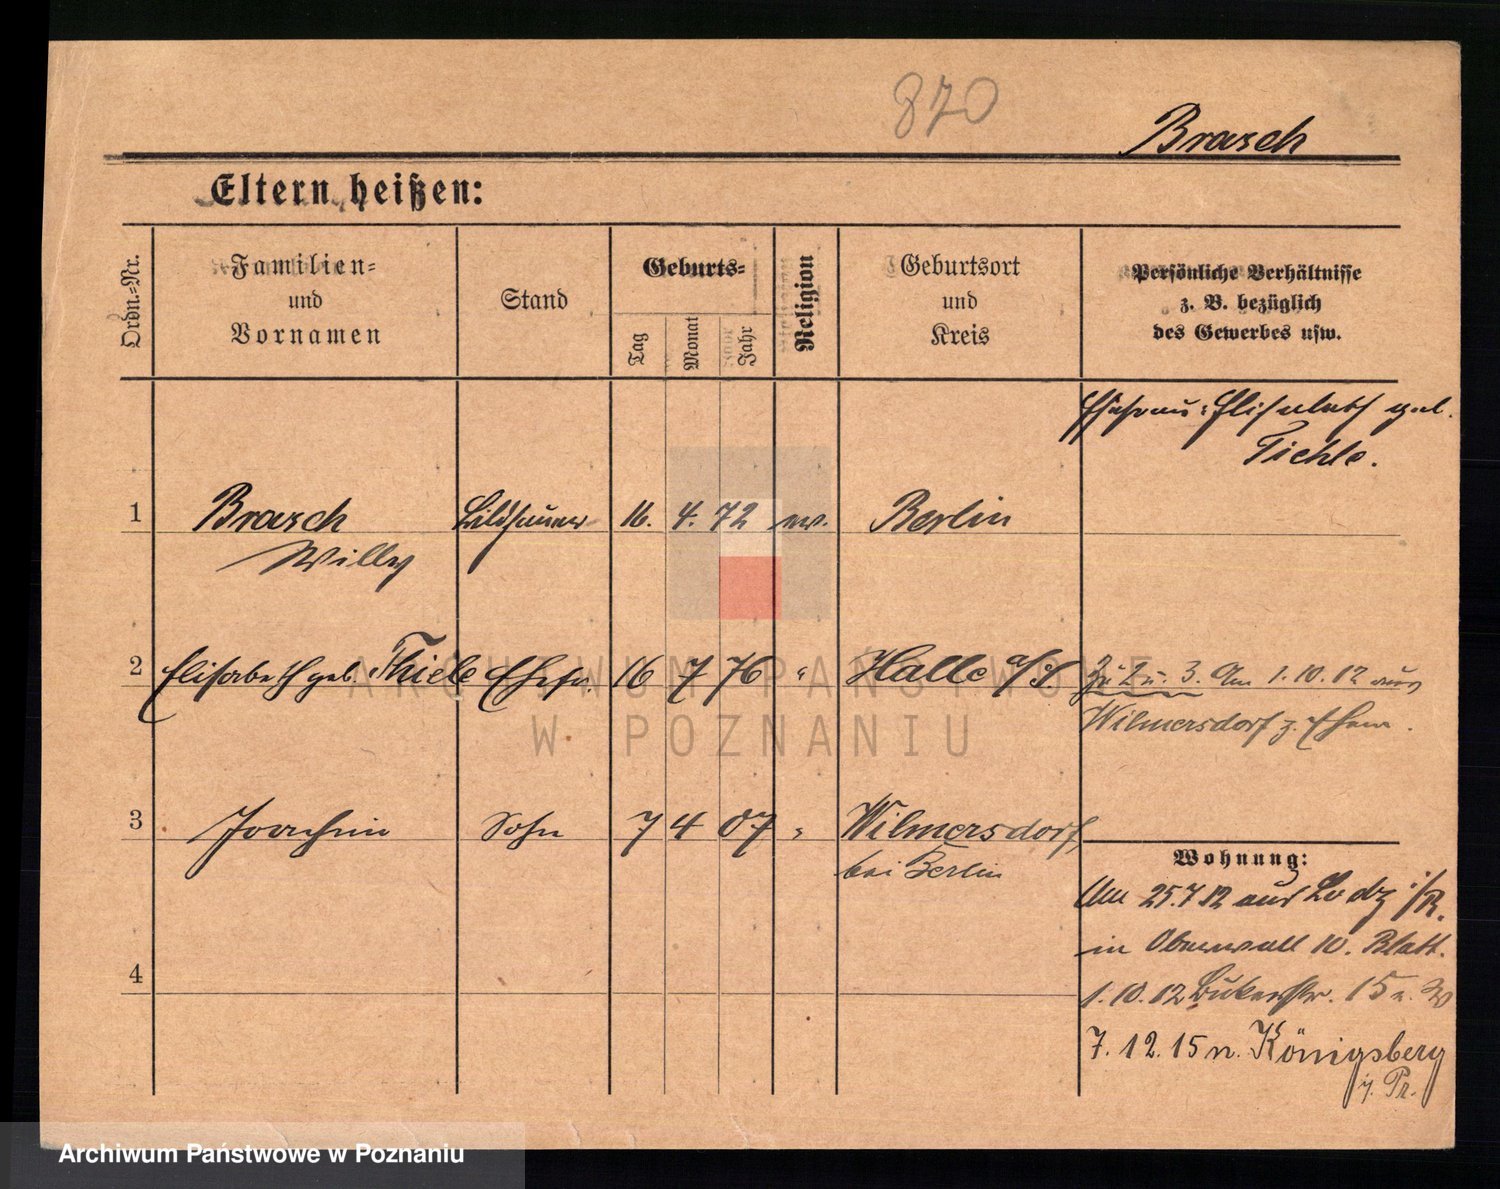 870
Brasch
Eltern heißen:
Ordn.-Nr.
Familien-
und
Vornamen
Stand
Geburts-
Tag
Monat
Jahr
Religion
Geburtsort
und
Kreis
Persönliche Verhältnisse
z. B. bezüglich
des Gewerbes usw.
Ehefrau: Elisabeth geb.
Tiehle.
1 Brasch Bildhauer 16. 4. 72 ev. Berlin
Willy
2 Elisabeth geb. Thiele Ehefr. 16 7 76 " Halle a/S. Zu 2 u. 3. Am 1.10.12 aus
Wilmersdorf z. Ehem.
3 Joachim Sohn 7 4 07 " Wilmersdorf
bei Berlin
Wohnung:
Am 25.7.12 aus Lodz i/R.
in Oberwall 10. Blatt.
4
1.10.12 Bukerstr. 15
7.12.15 n. Königsberg
i. Pr.
ARCHIWUM PAŃSTWOWE
W POZNANIU
Archiwum Państwowe w Poznaniu